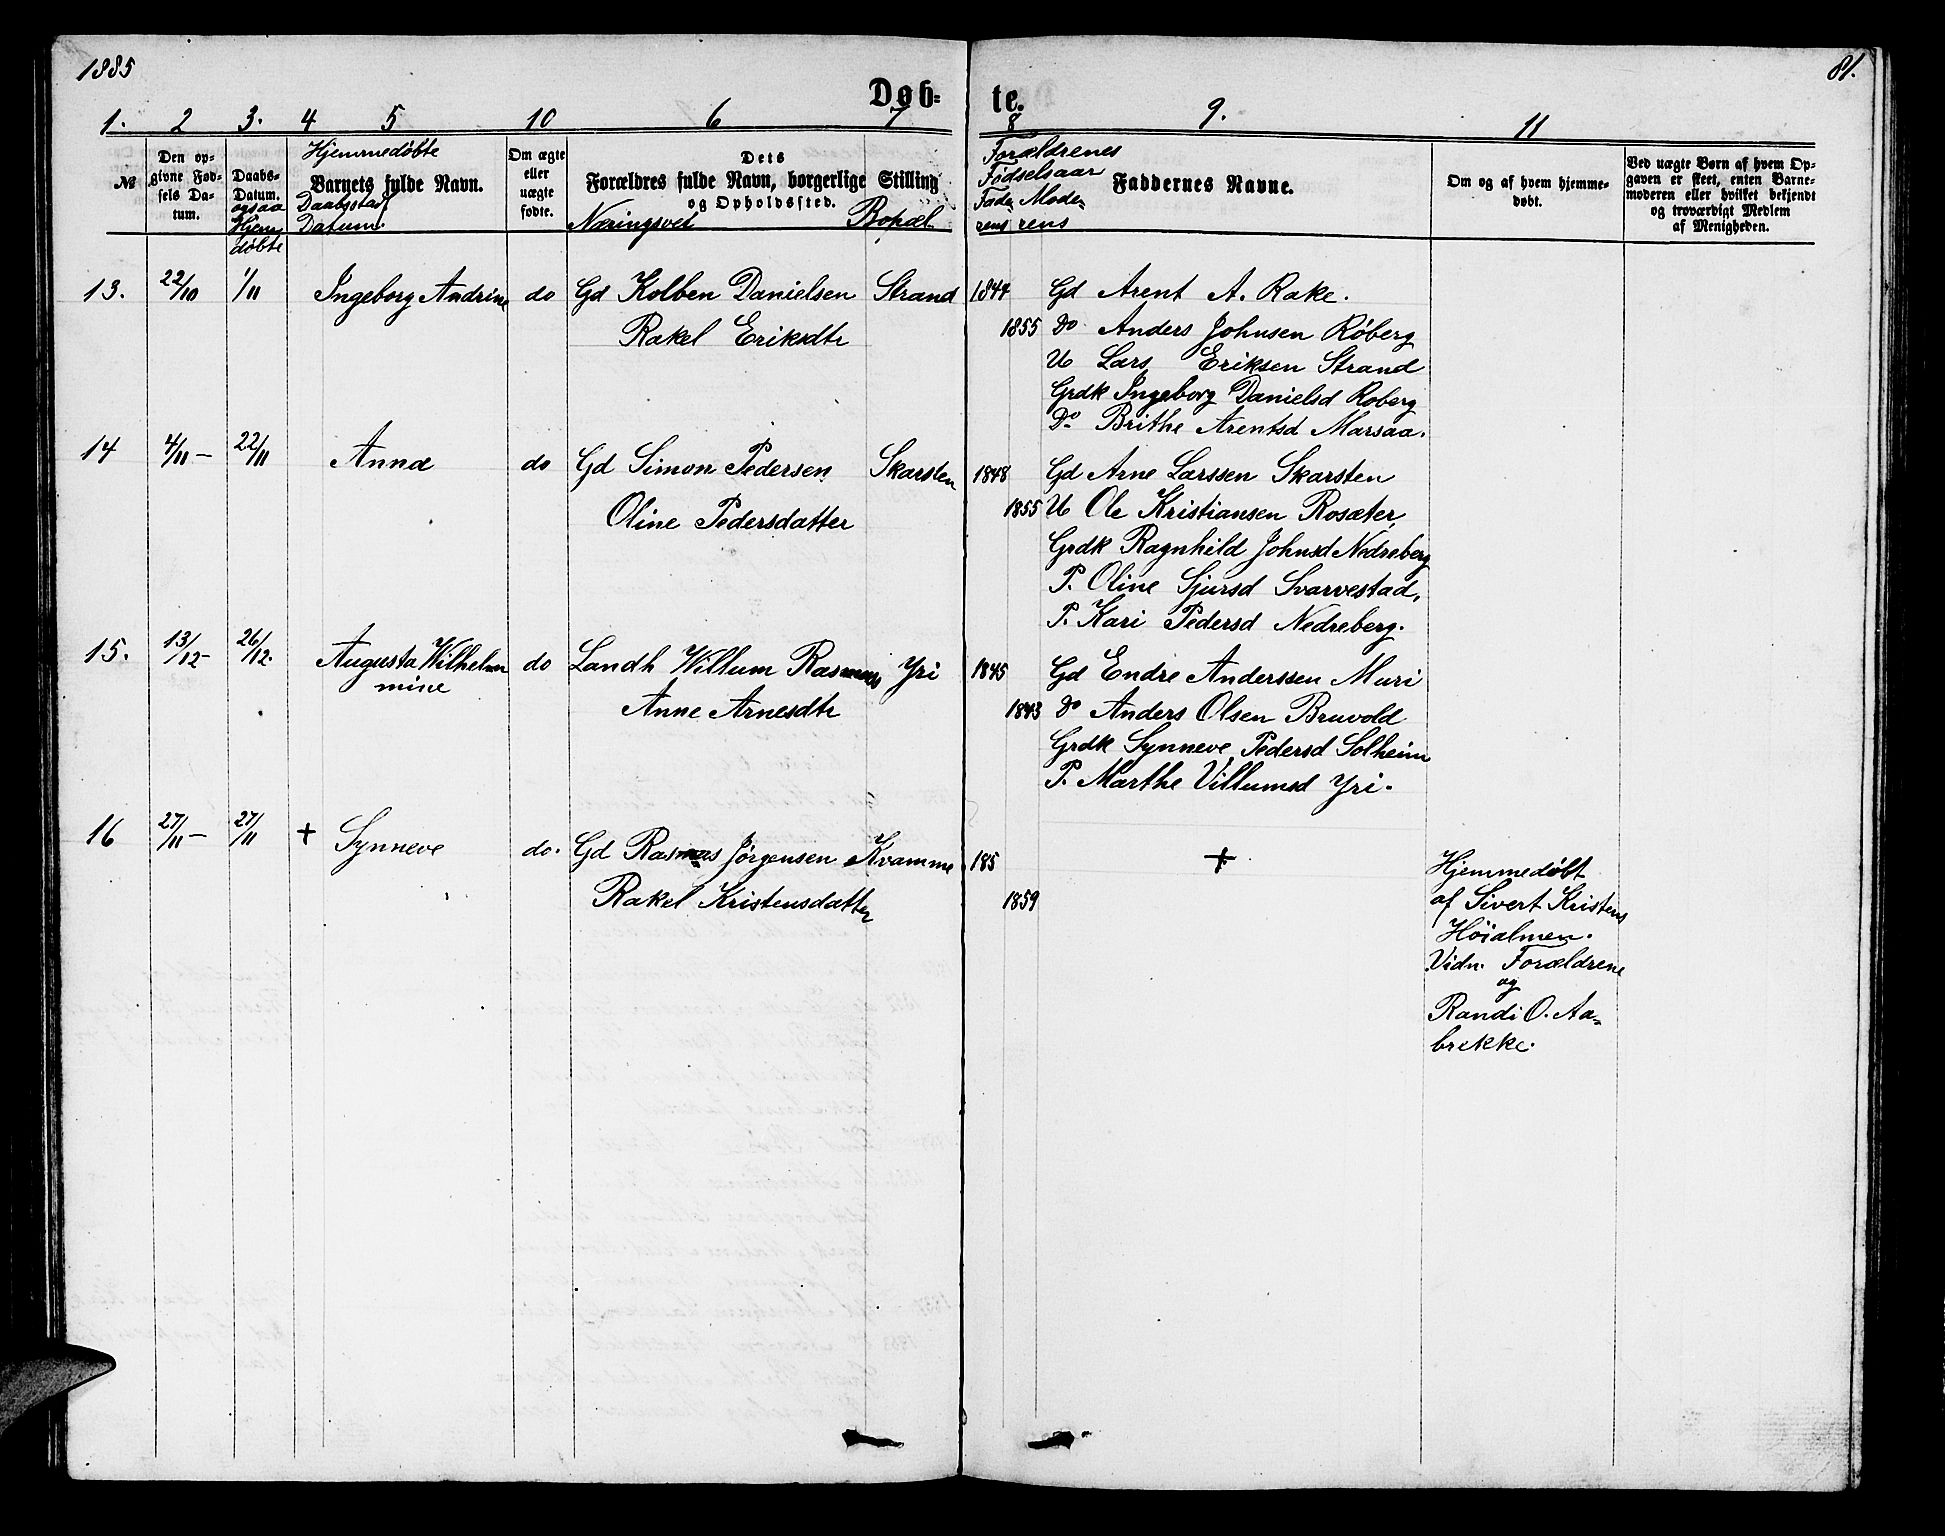 1885
81.
Døb- te.
1. 2 3. 4 5 10 6 7 8 9. 11
№
Den op-
givne Fød-
sels Da-
tum.
Daabs-
Datum.
ogsaa
Hjem
døbte
Hjemmedøbte
Barnets fulde Navn.
Daabsstad
Datum.
Om ægte
eller
uægte
fødte.
Dets
Forældres fulde Navn, borgerlige Stilling
og Opholdssted.
Næringsvei Bopæl
Forældrenes
Födselsaar
Fade- Mode-
rens rens
Faddernes Navne.
Om og af hvem hjemme-
døbt.
Ved uægte Børn af hvem Op-
gaven er skeet, enten Barne-
moderen eller hvilket bekjendt
og troværdigt Medlem
af Menigheden.
13. 22/10 1/11 Ingeborg Andrine do Gd Kolben Danielsen Strand 1844 Gd Arent A. Rake.
Rakel Eriksdtr 1855 Do Anders Johnsen Röberg
U Lars Eriksen Strand
Grdk Ingeborg Danielsd Roberg
Do Brithe Arentsd Marsaa.
14 4/11 - 22/11 Anna do Gd Simon Pedersen Skarsten 1848 Gd Arne Larssen Skarsten
Oline Pedersdatter 1855 U Ole Kristiansen Rosæter
Grdk Ragnhild Johnsd Nedreberg
P. Oline Sjursd Svarvestad,
P. Kari Pedersd Nedreberg.
15. 13/12- 26/12. Augusta Wilhelm do Landh Willum Rasmus Yri 1845 Gd Endre Anderssen Muri
mine
Anne Arnesdtr 1843 Do Anders Olsen Bruvold
Grdk Synneve Pedersd Solheim
P. Marthe Villumsd Yri.
16 27/11 - 27/11 + Synneve do. Gd Rasmus Jörgensen Kvamme 185 +
Rakel Kristensdatter 1859
Hjemmedöbt
af Sivert Kristens
Höialmen.
Vidn. Forældrene
og
Randi O. Aa-
brekke.